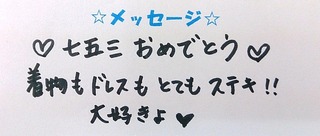 ☆メッセージ☆
♡七五三 おめでとう♡
着物もドレスも とても ステキ!!
大好きよ♥